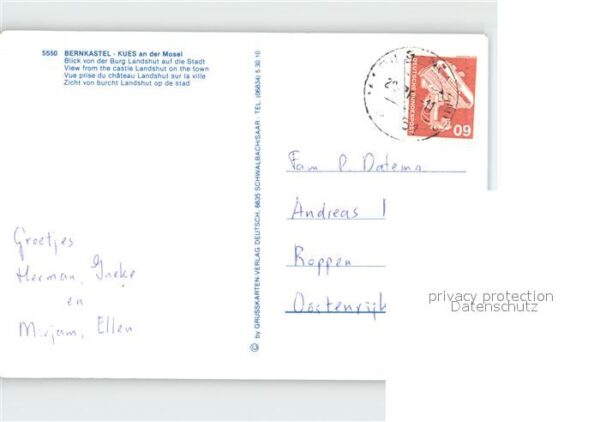 5550 BERNKASTEL - KUES an der Mosel
Blick von der Burg Landshut auf die Stadt
View from the castle Landshut on the town
Vue prise du château Landshut sur la ville
Zicht von burcht Landshut op de stad
Groetjes
Herman, Ineke
en
Mirjam, Ellen
© by GRUSSKARTEN-VERLAG DEUTSCH, 6635 SCHWALBACH/SAAR · TEL. (06834) 5 30 10
DEUTSCHE BUNDESPOST
60
Fam P. Datema
Andreas
Roppen
Oostenrijk
privacy protection
Datenschutz